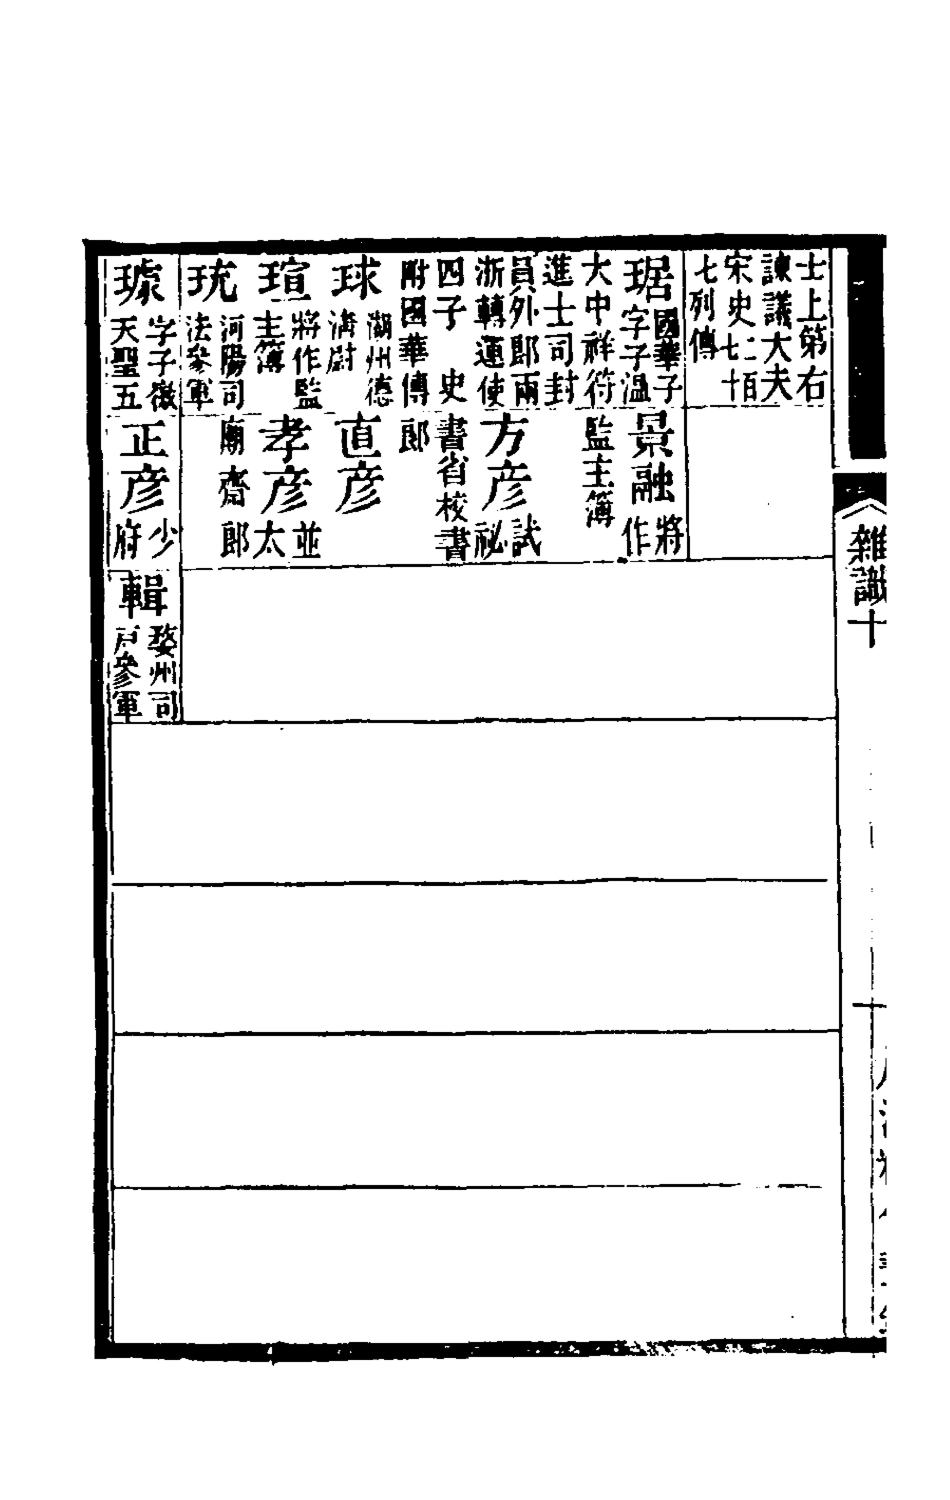 士上第右
諫議大夫
宋史二百七十
七列傳
琚 國華子
字子温
大中祥符
進士司封
員外郎兩
浙轉運使
四子 史
附國華傳
球 湖州德
清尉
瑄 將作監
主簿
珫 河陽司
法參軍
璩 字子徽
天聖五
景融 將
作
監主簿
方彦 試
祕
書省校書
郎
直彦
孝彦 並
太
廟齋郎
正彦 少
府
輯 婺州司
戸參軍
雜識十
十